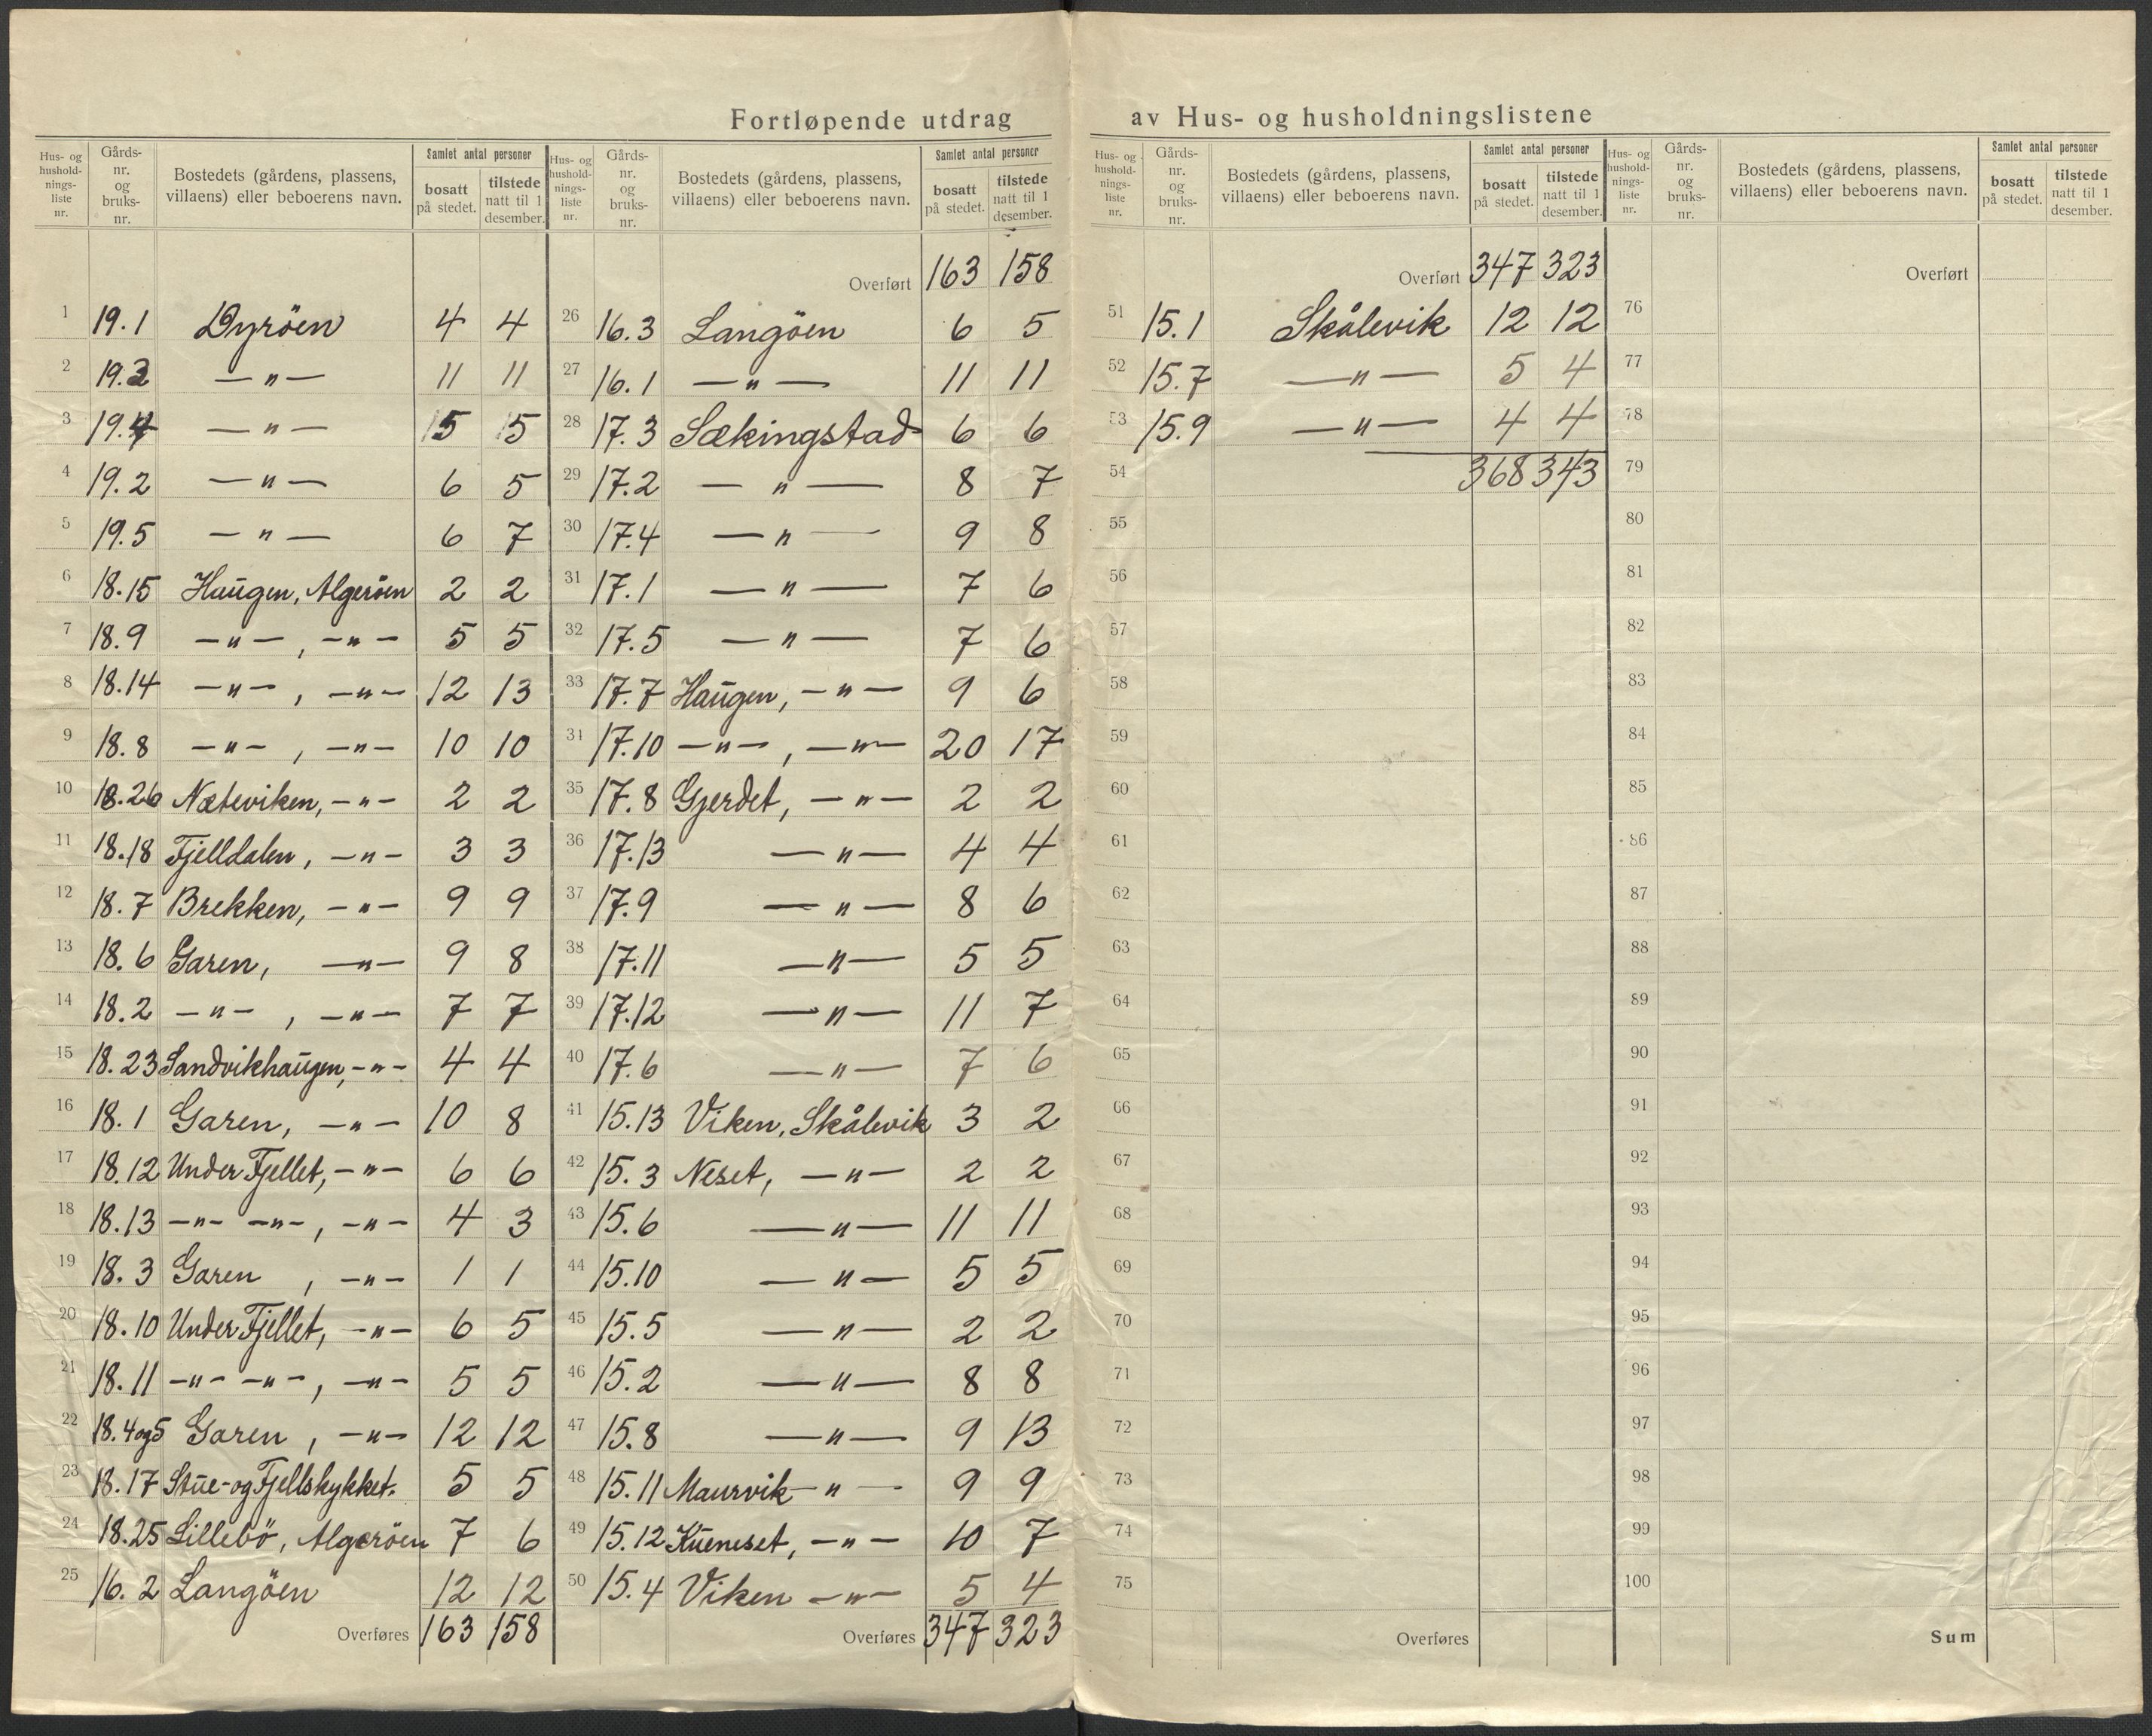 Fortløpende utdrag av Hus- og husholdningslistene
Hus- og hushold-nings-liste nr. Gårds-nr. og bruks-nr. Bostedets (gårdens, plassens, villaens) eller beboerens navn. Samlet antal personer bosatt på stedet. tilstede natt til 1 desember.
1 19.1 Dyröen 4 4
2 19.3 —"— 11 11
3 19.4 —"— 15 15
4 19.2 —"— 6 5
5 19.5 —"— 6 7
6 18.15 Haugen, Algeröen 2 2
7 18.9 —"—, —"— 5 5
8 18.14 —"—, —"— 12 13
9 18.8 —"—, —"— 10 10
10 18.26 Næteviken, —"— 2 2
11 18.18 Fjelldalen, —"— 3 3
12 18.7 Brekken, —"— 9 9
13 18.6 Garen, —"— 9 8
14 18.2 —"—, —"— 7 7
15 18.23 Sandvikhaugen, —"— 4 4
16 18.1 Garen, —"— 10 8
17 18.12 Under Fjellet, —"— 6 6
18 18.13 —"— —"—, —"— 4 3
19 18.3 Garen, —"— 1 1
20 18.10 Under Fjellet, —"— 6 5
21 18.11 —"— —"—, —"— 5 5
22 18.4og5 Garen, —"— 12 12
23 18.17 Stue- og Fjellstykket. 5 5
24 18.25 Lillebö, Algeröen 7 6
25 16.2 Langöen 12 12
Overføres 163 158
Hus- og hushold-nings-liste nr. Gårds-nr. og bruks-nr. Bostedets (gårdens, plassens, villaens) eller beboerens navn. Samlet antal personer bosatt på stedet. tilstede natt til 1 desember.
Overført 163 158
26 16.3 Langöen 6 5
27 16.1 —"— 11 11
28 17.3 Sækingstad 6 6
29 17.2 —"— 8 7
30 17.4 —"— 9 8
31 17.1 —"— 7 6
32 17.5 —"— 7 6
33 17.7 Haugen, —"— 9 6
31 17.10 —"—, —"— 20 17
35 17.8 Gjerdet, —"— 2 2
36 17.13 —"— 4 4
37 17.9 —"— 8 6
38 17.11 —"— 5 5
39 17.12 —"— 11 7
40 17.6 —"— 7 6
41 15.13 Viken, Skålevik 3 2
42 15.3 Neset, —"— 2 2
43 15.6 —"— 11 11
44 15.10 —"— 5 5
45 15.5 —"— 2 2
46 15.2 —"— 8 8
47 15.8 —"— 9 13
48 15.11 Maurvik —"— 9 9
49 15.12 Kueneset, —"— 10 7
50 15.4 Viken —"— 5 4
Overføres 347 323
Hus- og hushold-nings-liste nr. Gårds-nr. og bruks-nr. Bostedets (gårdens, plassens, villaens) eller beboerens navn. Samlet antal personer bosatt på stedet. tilstede natt til 1 desember.
Overført 347 323
51 15.1 Skålevik 12 12
52 15.7 —"— 5 4
53 15.9 —"— 4 4
54 368 343
55
56
57
58
59
60
61
62
63
64
65
66
67
68
69
70
71
72
73
74
75
Overføres
Hus- og hushold-nings-liste nr. Gårds-nr. og bruks-nr. Bostedets (gårdens, plassens, villaens) eller beboerens navn. Samlet antal personer bosatt på stedet. tilstede natt til 1 desember.
Overført
76
77
78
79
80
81
82
83
84
85
86
87
88
89
90
91
92
93
94
95
96
97
98
99
100
Sum